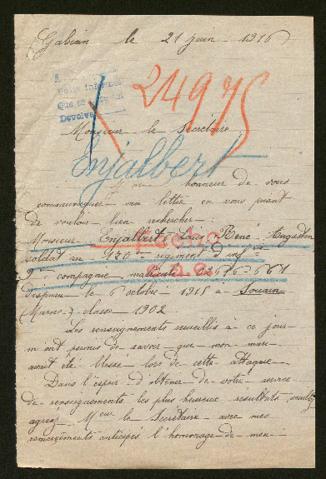 Gabian le 21 juin 1916
24975
Monsieur le Secrétaire
Enjalbert
honneur de vous
communiquer ma lettre en vous priant
de vouloir bien rechercher
Monsieur Enjalbert Louis René
soldat au régiment d'inf
9 compagnie matricule
disparu le 6 octobre 1915 à Souain
(Marne) classe 1902
Les renseignements recueillis à ce jour
m ont permis de savoir que mon mari
avait été blessé lors de cette attaque
Dans l'espoir d obtenir de votre service
de renseignements les plus heureux résultats veuillez
agréer Mr le Secrétaire avec mes
remerciements anticipés l'hommage de mon